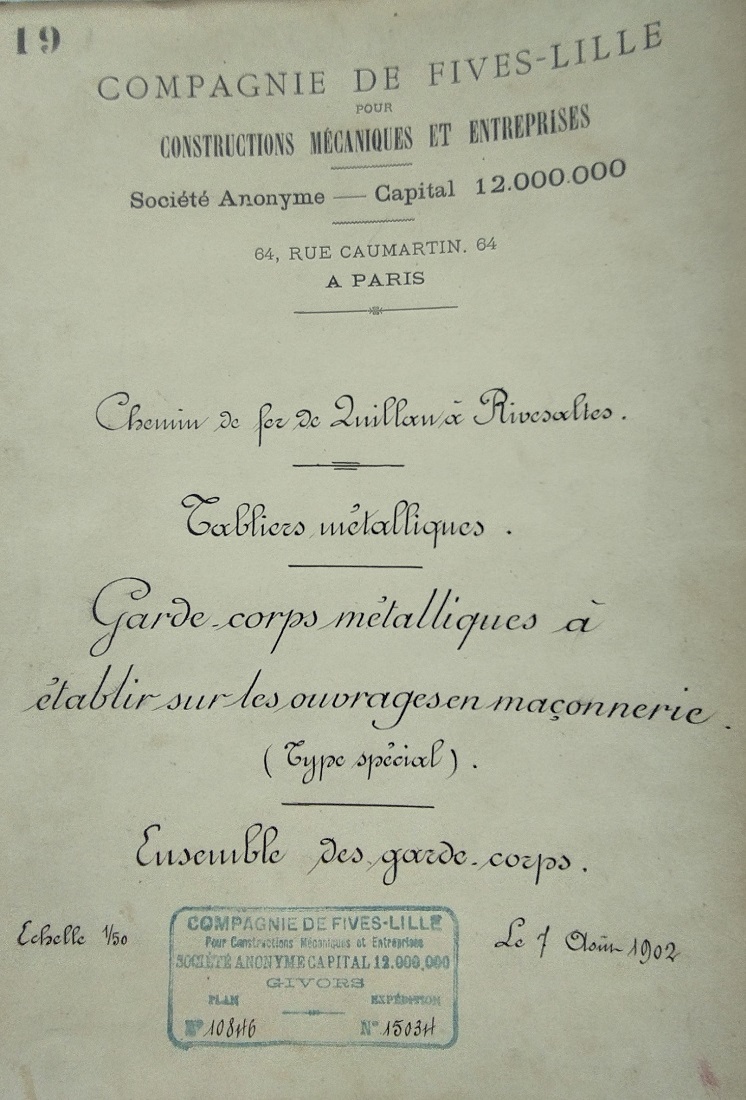 19
COMPAGNIE DE FIVES-LILLE
POUR
CONSTRUCTIONS MÉCANIQUES ET ENTREPRISES
Société Anonyme — Capital 12.000.000
64, RUE CAUMARTIN. 64
A PARIS
Chemin de fer de Quillan à Rivesaltes.
Tabliers métalliques.
Garde-corps métalliques à
établir sur les ouvrages en maçonnerie.
(Type spécial).
Ensemble des garde-corps.
Echelle 1/50
Le 7 Août 1902
COMPAGNIE DE FIVES-LILLE
Pour Constructions Mécaniques et Entreprises
SOCIÉTÉ ANONYME CAPITAL 12.000,000
GIVORS
PLAN EXPÉDITION
N° 10846 N° 15034